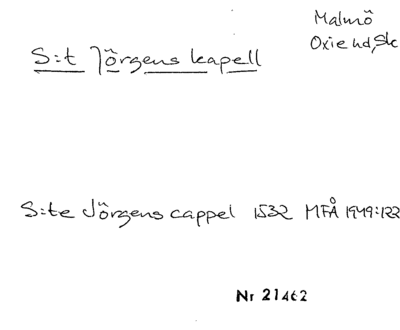 Malmö
Oxie hd, Sk
S:t Jörgens kapell
S:te Jörgens cappel 1532 MFÅ 1949:122
Nr 21462